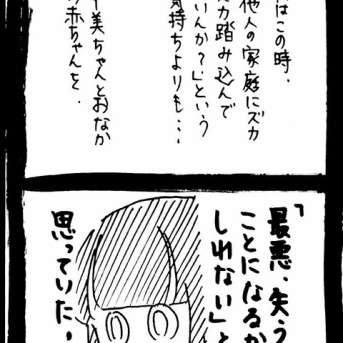 はこの時、
他人の家庭にズカ
ズカ踏み込んで
いいんか?」という
気持ちよりも…
美ちゃんとおなか
赤ちゃんを、
「最悪、失う
ことになるか
しれない」と
思っていた…